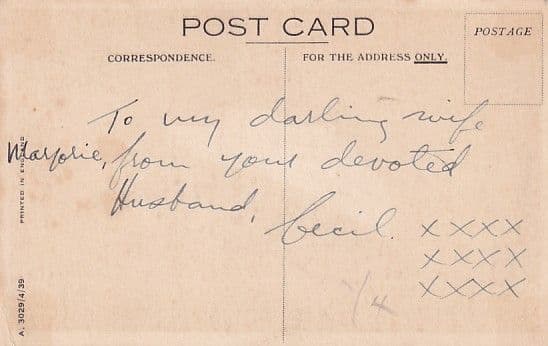 POST CARD
POSTAGE
CORRESPONDENCE.
FOR THE ADDRESS ONLY.
To my darling wife
Marjorie, from your devoted
Husband,
Cecil. X X X X
X X X X
X X X X
1/4
PRINTED IN ENGLAND
A. 3029/4/39